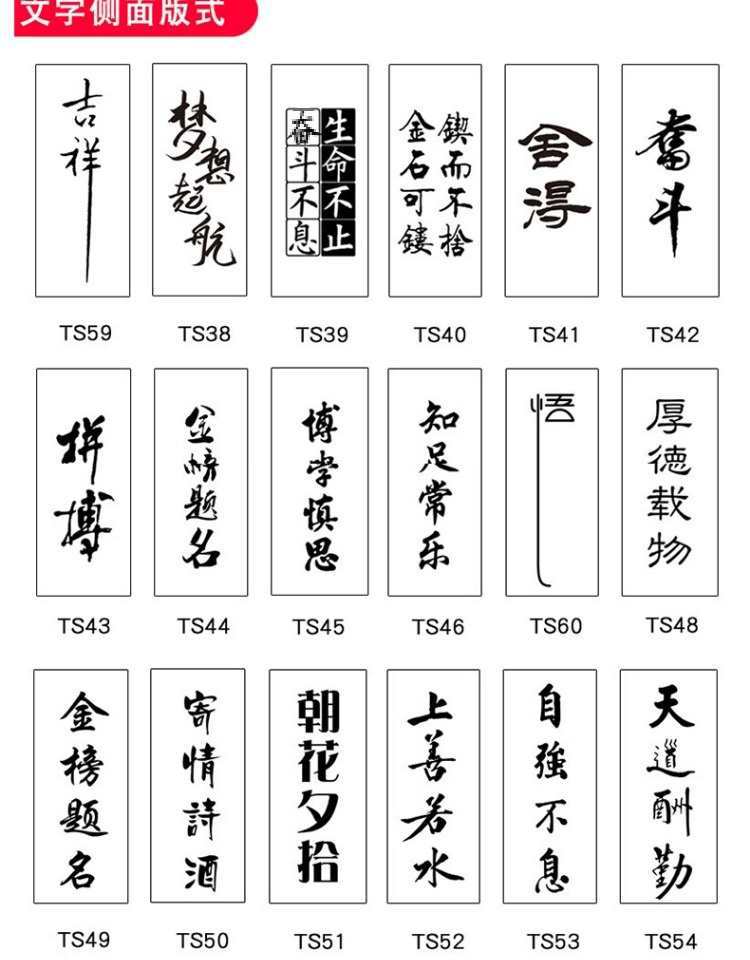 文字侧面版式
吉祥
梦想起航
生命不止
奋斗不息
鍥而不捨
金石可鏤
舍得
奮斗
TS59
TS38
TS39
TS40
TS41
TS42
拼搏
金榜题名
博学慎思
知足常乐
悟
厚德载物
TS43
TS44
TS45
TS46
TS60
TS48
金榜题名
寄情詩酒
朝花夕拾
上善若水
自強不息
天道酬勤
TS49
TS50
TS51
TS52
TS53
TS54